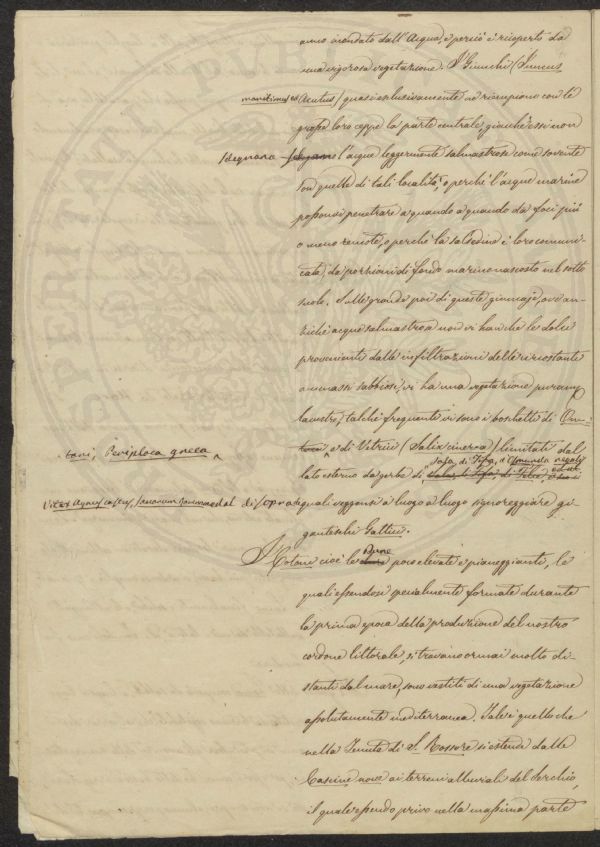 anno inondato dall'Acqua, e perciò è ricoperto da
una vigorosa vegetazione. I Giunchi (Juncus
maritimus ed Acutus) quasi esclusivamente ne riempiono con le
grosse loro ceppe la parte centrale, giacchè essi non
sdegnano l'acque leggermente salmastrose come sovente
son quelle di tali località, o perchè l'acque marine
possonsi penetrare a quando a quando da foci più
o meno remote, o perchè la salsedine è loro comuni-
cata, da porzioni di fondo marino nascosto nel sotto
suolo. Sulle grandi poi di queste giuncaje, ove an-
zichè acque salmastrose non vi han che le dolci
provenienti dalle infiltrazioni delle circostanti
ammassi sabbiosi, vi ha una vegetazione puram.
lacustre, talchè frequenti vi sono i boschetti di On-
tani, Periploca græca
e di Vetrici (Salix cinerea) limitati dal
lato esterno da gerbi di Sala, di Tifa, d'Osmunda regalis
Vitex Agnus castus, al di sopra di quali veggonsi a luogo a luogo signoreggiare gi-
ganteschi Gattici.
I Cotoni cioè le Dune poco elevate e pianeggianti, le
quali essendosi specialmente formate durante
la prima epoca della produzione del nostro
cordone littorale, si trovano ormai molto di-
stanti dal mare, sono vestiti di una vegetazione
assolutamente mediterranea. Tale è quello che
nella Tenuta di S. Rossore si estende dalle
Cascine nuove ai terreni alluviali del Serchio,
il quale essendo privo nella massima parte